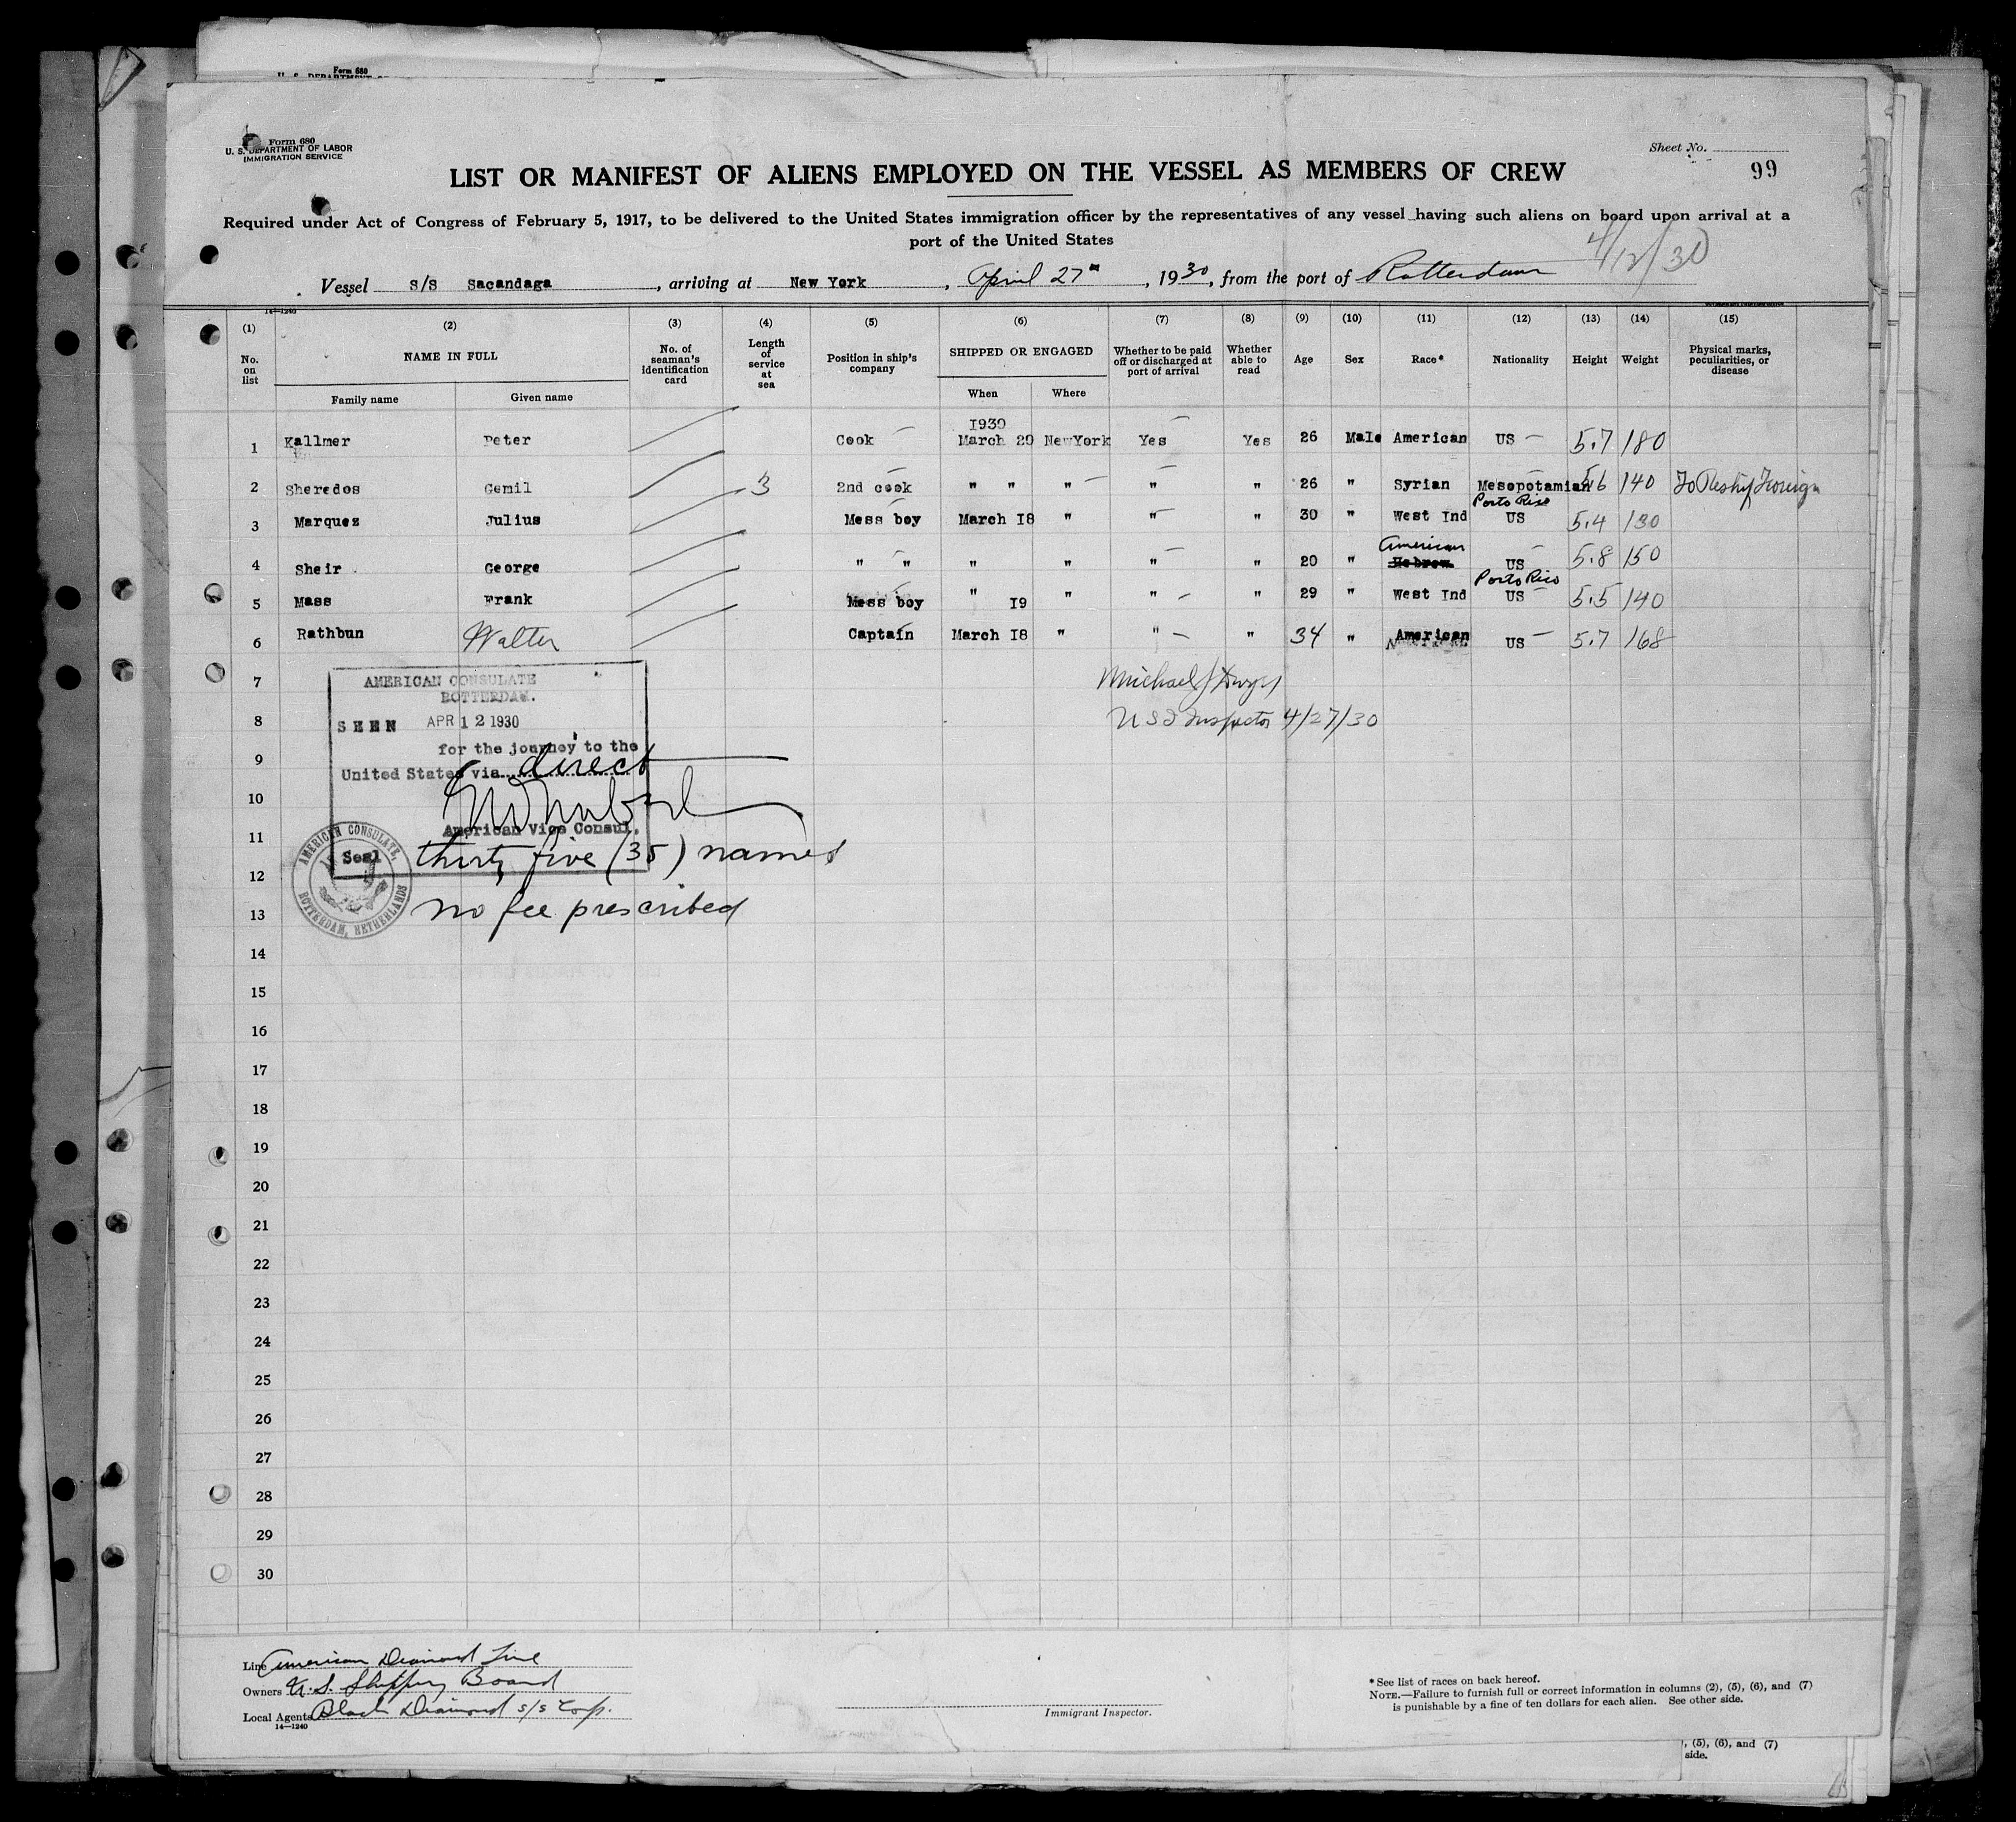 Form 680
Form 680
U. S. DEPARTMENT OF LABOR
IMMIGRATION SERVICE
Sheet No.
99
LIST OR MANIFEST OF ALIENS EMPLOYED ON THE VESSEL AS MEMBERS OF CREW
Required under Act of Congress of February 5, 1917, to be delivered to the United States immigration officer by the representatives of any vessel having such aliens on board upon arrival at a
port of the United States
4/12/30
Vessel S/S Sacandaga, arriving at New York, April 27", 1930, from the port of Rotterdam
14—1240
(1) (2) (3) (4) (5) (6) (7) (8) (9) (10) (11) (12) (13) (14) (15)
No. on list NAME IN FULL No. of seaman's identification card Length of service at sea Position in ship's company SHIPPED OR ENGAGED Whether to be paid off or discharged at port of arrival Whether able to read Age Sex Race* Nationality Height Weight Physical marks, peculiarities, or disease
Family name Given name When Where
1930
1 Kallmer Peter Cook March 20 NewYork Yes Yes 26 Male American US 5.7 180
2 Sheredos Gemil 3 2nd cook " " " " " 26 " Syrian Mesopotamian 5.6 140 To Reship Foreign
Porto Rico
3 Marquez Julius Mess boy March 18 " " " 30 " West Ind US 5.4 130
American
4 Sheir George " " " " " " 20 " Hebrew US 5.8 150
Porto Rico
5 Mass Frank Mess boy " 19 " " " 29 " West Ind US 5.5 140
6 Rathbun Walter Captain March 18 " " " 34 " American US 5.7 168
7 Michael J Dwyer
8 U S I Inspector 4/27/30
AMERICAN CONSULATE
ROTTERDAM.
SEEN APR 12 1930
for the journey to the
9
United States via direct
10
American Vice Consul.
11
Seal thirty five (35) names
12
AMERICAN CONSULATE, ROTTERDAM, NETHERLANDS
13 no fee prescribed
14
15
16
17
18
19
20
21
22
23
24
25
26
27
28
29
30
Line American Diamond Line
Owners U.S. Shipping Board
Local Agents Black Diamond S/S Corp.
14—1240
Immigrant Inspector.
* See list of races on back hereof.
NOTE.—Failure to furnish full or correct information in columns (2), (5), (6), and (7)
is punishable by a fine of ten dollars for each alien. See other side.
, (5), (6), and (7)
side.